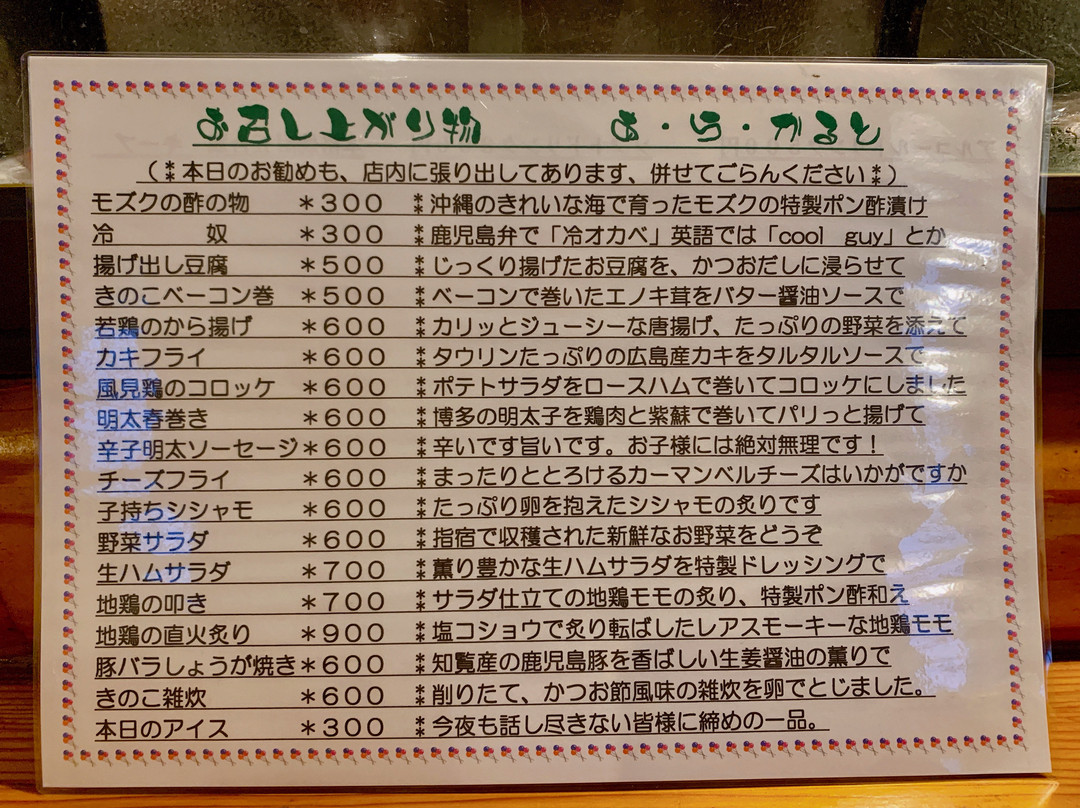 お召し上がり物　あ・ら・かると
（⁑本日のお勧めも、店内に張り出してあります、併せてごらんください⁑）
モズクの酢の物　＊３００　⁑沖縄のきれいな海で育ったモズクの特製ポン酢漬け
冷　奴　＊３００　⁑鹿児島弁で「冷オカベ」英語では「cool guy」とか
揚げ出し豆腐　＊５００　⁑じっくり揚げたお豆腐を、かつおだしに浸らせて
きのこベーコン巻　＊５００　⁑ベーコンで巻いたエノキ茸をバター醤油ソースで
若鶏のから揚げ　＊６００　⁑カリッとジューシーな唐揚げ、たっぷりの野菜を添えて
カキフライ　＊６００　⁑タウリンたっぷりの広島産カキをタルタルソースで
風見鶏のコロッケ　＊６００　⁑ポテトサラダをロースハムで巻いてコロッケにしました
明太春巻き　＊６００　⁑博多の明太子を鶏肉と紫蘇で巻いてパリっと揚げて
辛子明太ソーセージ＊６００　⁑辛いです旨いです。お子様には絶対無理です！
チーズフライ　＊６００　⁑まったりととろけるカーマンベルチーズはいかがですか
子持ちシシャモ　＊６００　⁑たっぷり卵を抱えたシシャモの炙りです
野菜サラダ　＊６００　⁑指宿で収穫された新鮮なお野菜をどうぞ
生ハムサラダ　＊７００　⁑薫り豊かな生ハムサラダを特製ドレッシングで
地鶏の叩き　＊７００　⁑サラダ仕立ての地鶏モモの炙り、特製ポン酢和え
地鶏の直火炙り　＊９００　⁑塩コショウで炙り転ばしたレアスモーキーな地鶏モモ
豚バラしょうが焼き＊６００　⁑知覧産の鹿児島豚を香ばしい生姜醤油の薫りで
きのこ雑炊　＊６００　⁑削りたて、かつお節風味の雑炊を卵でとじました。
本日のアイス　＊３００　⁑今夜も話し尽きない皆様に締めの一品。